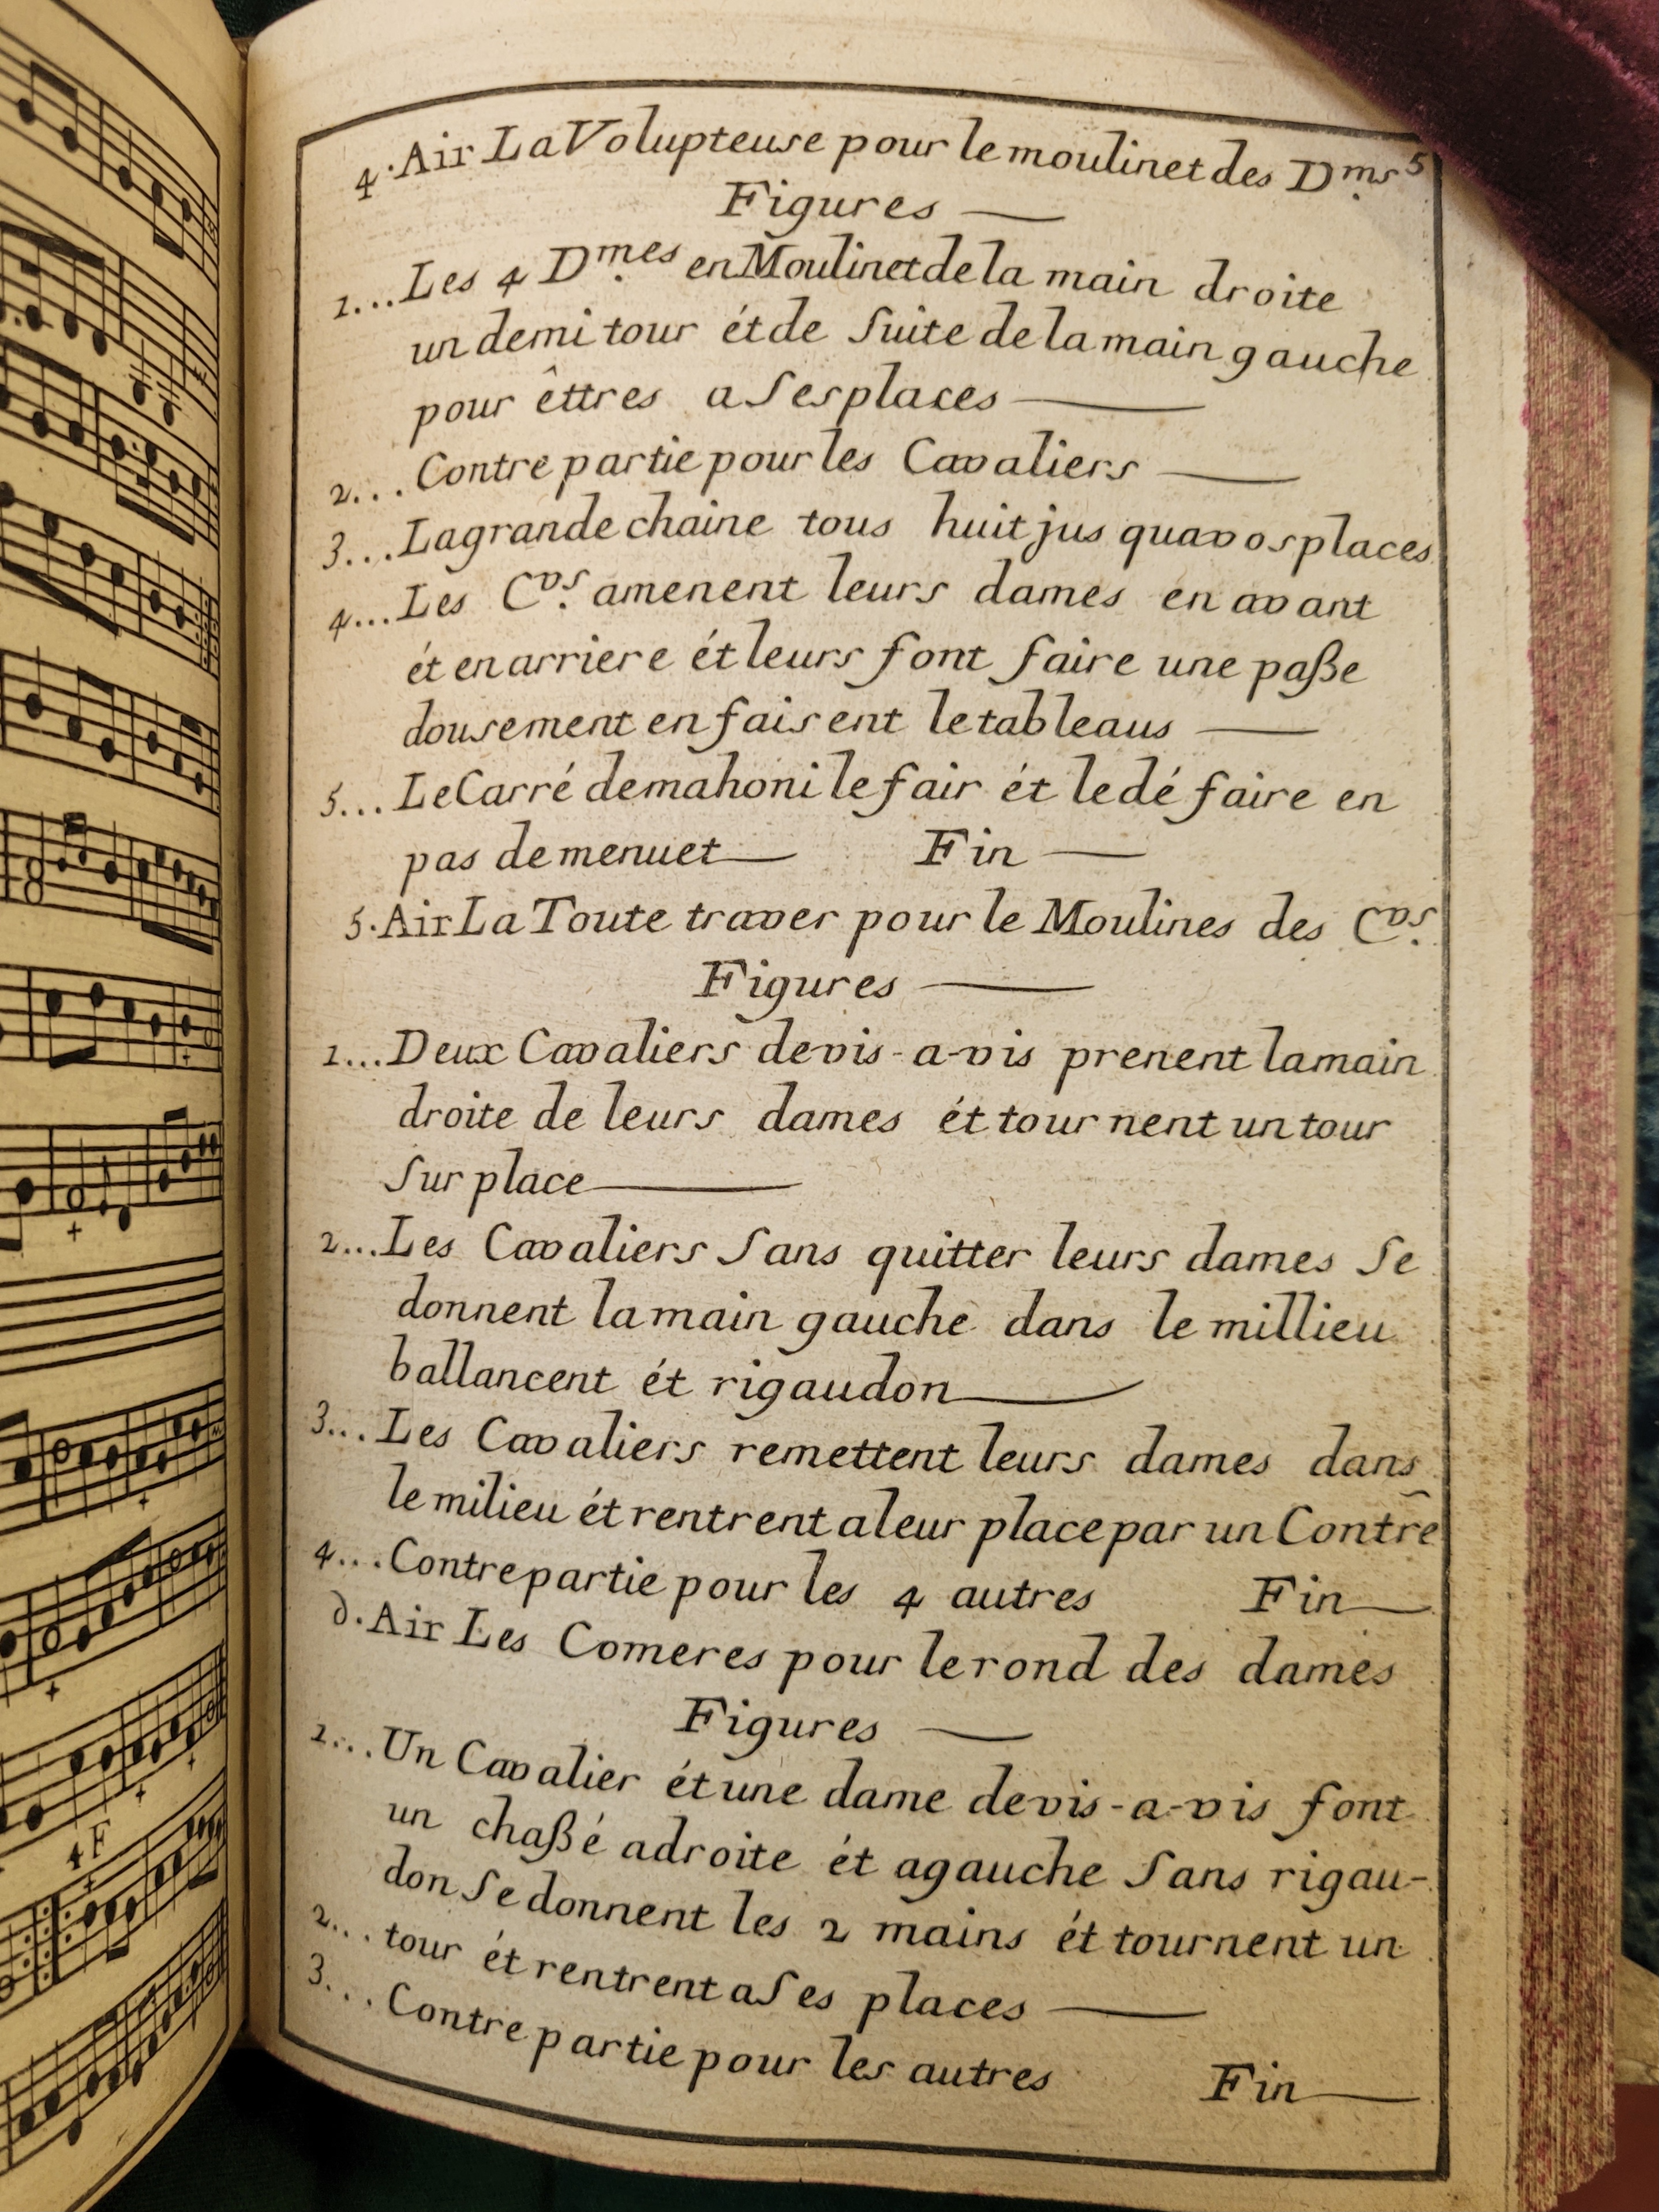 4. Air La Volupteuse pour le moulinet des Dmes 5
Figures
1... Les 4 Dmes en Moulinet de la main droite
un demi tour ét de Suite de la main gauche
pour êttres a Ses places
2... Contre partie pour les Cavaliers
3... La grande chaine tous huit jus qua vos places
4... Les Cvs. amenent leurs dames en avant
ét en arriere ét leurs font faire une paße
dousement en faisent le tableaus
5... Le Carré de mahoni le fair ét le dé faire en
pas de menuet Fin
5. Air La Toute traver pour le Moulines des Cvs.
Figures
1... Deux Cavaliers de vis-a-vis prenent la main
droite de leurs dames ét tour nent un tour
Sur place
2... Les Cavaliers Sans quitter leurs dames Se
donnent la main gauche dans le millieu
ballancent ét rigaudon
3... Les Cavaliers remettent leurs dames dans
le milieu ét rentrent a leur place par un Contrẽ
4... Contre partie pour les 4 autres Fin
6. Air Les Comeres pour le rond des dames
Figures
1... Un Cavalier ét une dame de vis-a-vis font
un chaßé a droite ét a gauche Sans rigau-
don Se donnent les 2 mains ét tournent un
2... tour ét rentrent a Ses places
3... Contre partie pour les autres Fin
4F